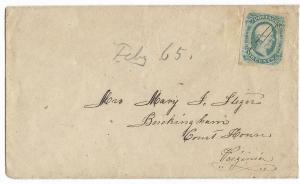 Feby 65.
Mrs Mary J. Steger
Buckingham
Court House
Virginia